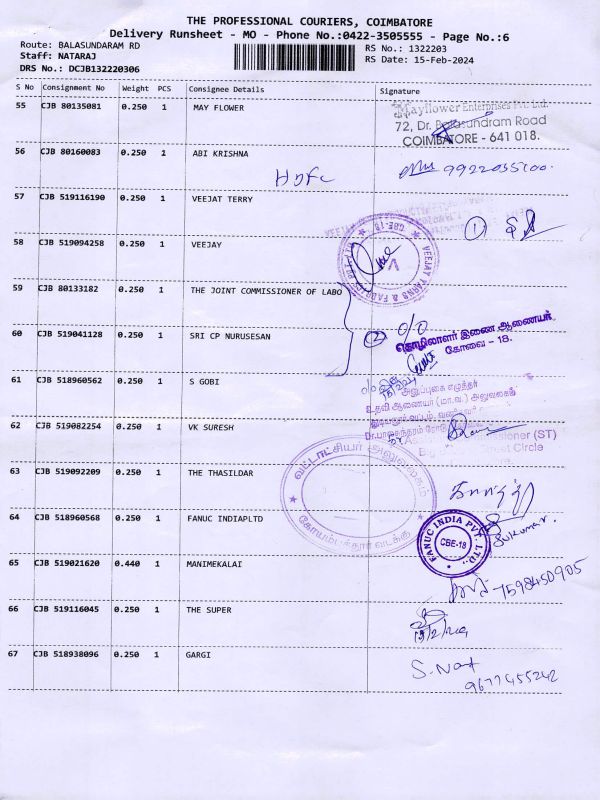 THE PROFESSIONAL COURIERS, COIMBATORE
Delivery Runsheet - MO - Phone No.:0422-3505555 - Page No.:6
Route: BALASUNDARAM RD
Staff: NATARAJ
DRS No.: DCJB132220306
RS No.: 1322203
RS Date: 15-Feb-2024
S No Consignment No Weight PCS Consignee Details Signature
55 CJB 80135081 0.250 1 MAY FLOWER
Mayflower Enterprises Pvt. Ltd.
72, Dr. Balasundram Road
COIMBATORE - 641 018.
56 CJB 80160083 0.250 1 ABI KRISHNA
57 CJB 519116190 0.250 1 VEEJAT TERRY
1
58 CJB 519094258 0.250 1 VEEJAY
CBE-18
59 CJB 80133182 0.250 1 THE JOINT COMMISSIONER OF LABO
60 CJB 519041128 0.250 1 SRI CP NURUSESAN
2 o/o
தொழிலாளர் இணை ஆணையர்
கோவை - 18.
61 CJB 518960562 0.250 1 S GOBI
அனுப்புகை எழுத்தர்
உதவி ஆணையர் (மா.வ.) அலுவலகம்
62 CJB 519082254 0.250 1 VK SURESH
63 CJB 519092209 0.250 1 THE THASILDAR
வட்டாட்சியர் அலுவலகம்
கோயம்புத்தூர் வடக்கு
64 CJB 518960568 0.250 1 FANUC INDIAPLTD
FANUC INDIA PVT. LTD.
CBE-18
Sukumar.
65 CJB 519021620 0.440 1 MANIMEKALAI
7598450905
66 CJB 519116045 0.250 1 THE SUPER
67 CJB 518938096 0.250 1 GARGI
9677455242